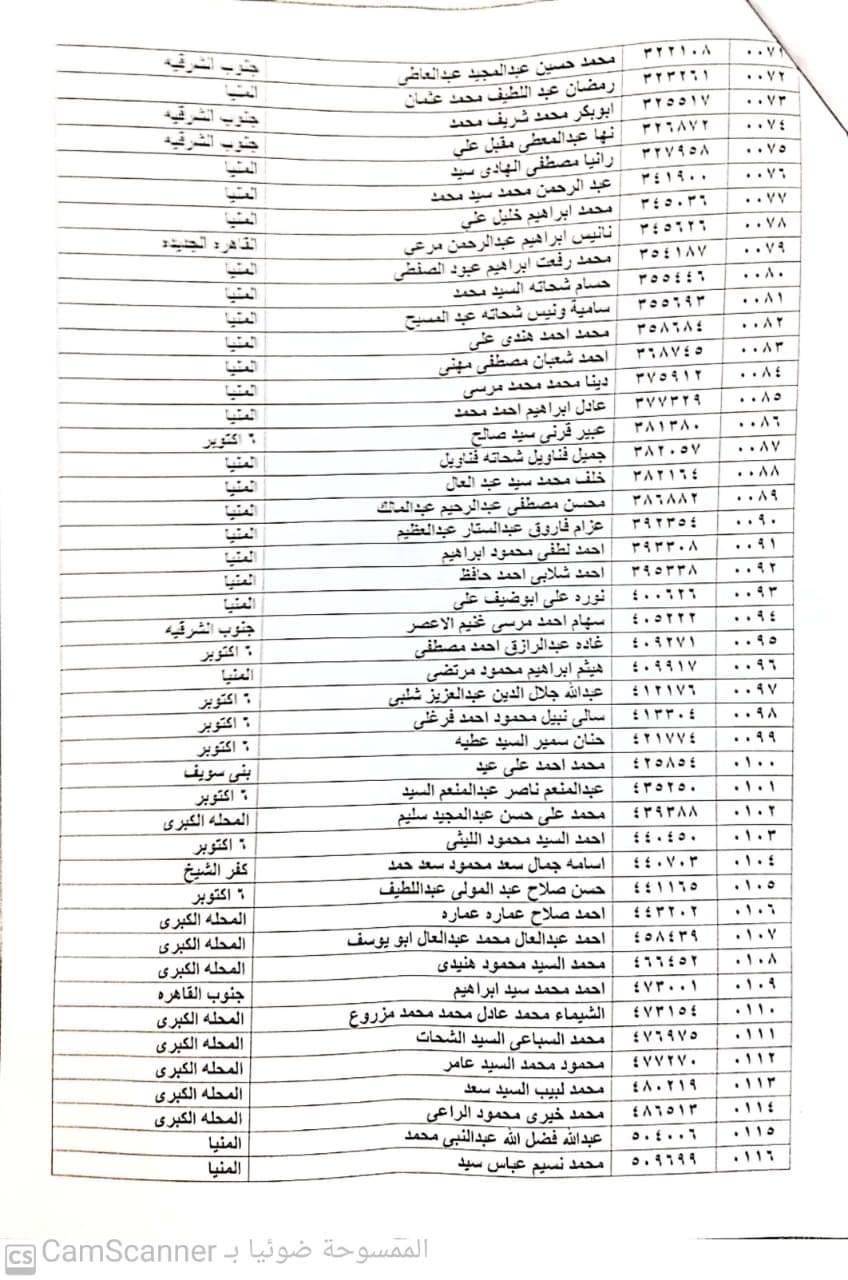 ٠٠٧١ ٣٢٢١٠٨ محمد حسين عبدالمجيد عبدالعاطى جنوب الشرقيه
٠٠٧٢ ٣٢٣٢٦١ رمضان عبد اللطيف محمد عثمان المنيا
٠٠٧٣ ٣٢٥٥١٧ ابوبكر محمد شريف محمد جنوب الشرقيه
٠٠٧٤ ٣٢٦٨٧٢ نها عبدالمعطى مقبل على جنوب الشرقيه
٠٠٧٥ ٣٢٧٩٥٨ رانيا مصطفى الهادى سيد المنيا
٠٠٧٦ ٣٤١٩٠٠ عبد الرحمن محمد سيد محمد المنيا
٠٠٧٧ ٣٤٥٠٣٦ محمد ابراهيم خليل على المنيا
٠٠٧٨ ٣٤٥٦٢٦ نانيس ابراهيم عبدالرحمن مرعى القاهره الجديده
٠٠٧٩ ٣٥٤١٨٧ محمد رفعت ابراهيم عبود الصفطى المنيا
٠٠٨٠ ٣٥٥٤٤٦ حسام شحاته السيد محمد المنيا
٠٠٨١ ٣٥٥٦٩٣ سامية ونيس شحاته عبد المسيح المنيا
٠٠٨٢ ٣٥٨٦٨٤ محمد احمد هندى على المنيا
٠٠٨٣ ٣٦٨٧٤٥ احمد شعبان مصطفى مهنى المنيا
٠٠٨٤ ٣٧٥٩١٢ دينا محمد محمد مرسى المنيا
٠٠٨٥ ٣٧٧٣٢٩ عادل ابراهيم احمد محمد المنيا
٠٠٨٦ ٣٨١٣٨٠ عبير قرنى سيد صالح ٦ اكتوبر
٠٠٨٧ ٣٨٢٠٥٧ جميل فناويل شحاته فناويل المنيا
٠٠٨٨ ٣٨٢١٦٤ خلف محمد سيد عبد العال المنيا
٠٠٨٩ ٣٨٦٨٨٢ محسن مصطفى عبدالرحيم عبدالمالك المنيا
٠٠٩٠ ٣٩٢٣٥٤ عزام فاروق عبدالستار عبدالعظيم المنيا
٠٠٩١ ٣٩٣٣٠٨ احمد لطفى محمود ابراهيم المنيا
٠٠٩٢ ٣٩٥٣٣٨ احمد شلابى احمد حافظ المنيا
٠٠٩٣ ٤٠٠٦٢٦ نوره على ابوضيف على المنيا
٠٠٩٤ ٤٠٥٢٢٢ سهام احمد مرسى غنيم الاعصر جنوب الشرقيه
٠٠٩٥ ٤٠٩٢٧١ غاده عبدالرازق احمد مصطفى ٦ اكتوبر
٠٠٩٦ ٤٠٩٩١٧ هيثم ابراهيم محمود مرتضى المنيا
٠٠٩٧ ٤١٢١٧٦ عبدالله جلال الدين عبدالعزيز شلبى ٦ اكتوبر
٠٠٩٨ ٤١٣٣٠٤ سالى نبيل محمود احمد فرغلى ٦ اكتوبر
٠٠٩٩ ٤٢١٧٧٤ حنان سمير السيد عطيه ٦ اكتوبر
٠١٠٠ ٤٢٥٨٥٤ محمد احمد على عيد بنى سويف
٠١٠١ ٤٣٥٢٥٠ عبدالمنعم ناصر عبدالمنعم السيد ٦ اكتوبر
٠١٠٢ ٤٣٩٣٨٨ محمد على حسن عبدالمجيد سليم المحله الكبرى
٠١٠٣ ٤٤٠٤٥٠ احمد السيد محمود الليثى ٦ اكتوبر
٠١٠٤ ٤٤٠٧٠٣ اسامه جمال سعد محمود سعد حمد كفر الشيخ
٠١٠٥ ٤٤١١٦٥ حسن صلاح عبد المولى عبداللطيف ٦ اكتوبر
٠١٠٦ ٤٤٣٢٠٢ احمد صلاح عماره عماره المحله الكبرى
٠١٠٧ ٤٥٨٤٣٩ احمد عبدالعال محمد عبدالعال ابو يوسف المحله الكبرى
٠١٠٨ ٤٦٦٤٥٢ محمد السيد محمود هنيدى المحله الكبرى
٠١٠٩ ٤٧٣٠٠١ احمد محمد سيد ابراهيم جنوب القاهره
٠١١٠ ٤٧٣١٥٤ الشيماء محمد عادل محمد محمد مزروع المحله الكبرى
٠١١١ ٤٧٦٩٧٥ محمد السباعى السيد الشحات المحله الكبرى
٠١١٢ ٤٧٧٢٧٠ محمود محمد السيد عامر المحله الكبرى
٠١١٣ ٤٨٠٢١٩ محمد لبيب السيد سعد المحله الكبرى
٠١١٤ ٤٨٦٥١٣ محمد خيرى محمود الراعى المحله الكبرى
٠١١٥ ٥٠٤٠٠٦ عبدالله فضل الله عبدالنبى محمد المنيا
٠١١٦ ٥٠٩٦٩٩ محمد نسيم عباس سيد المنيا
الممسوحة ضوئيا بـ CamScanner
CS